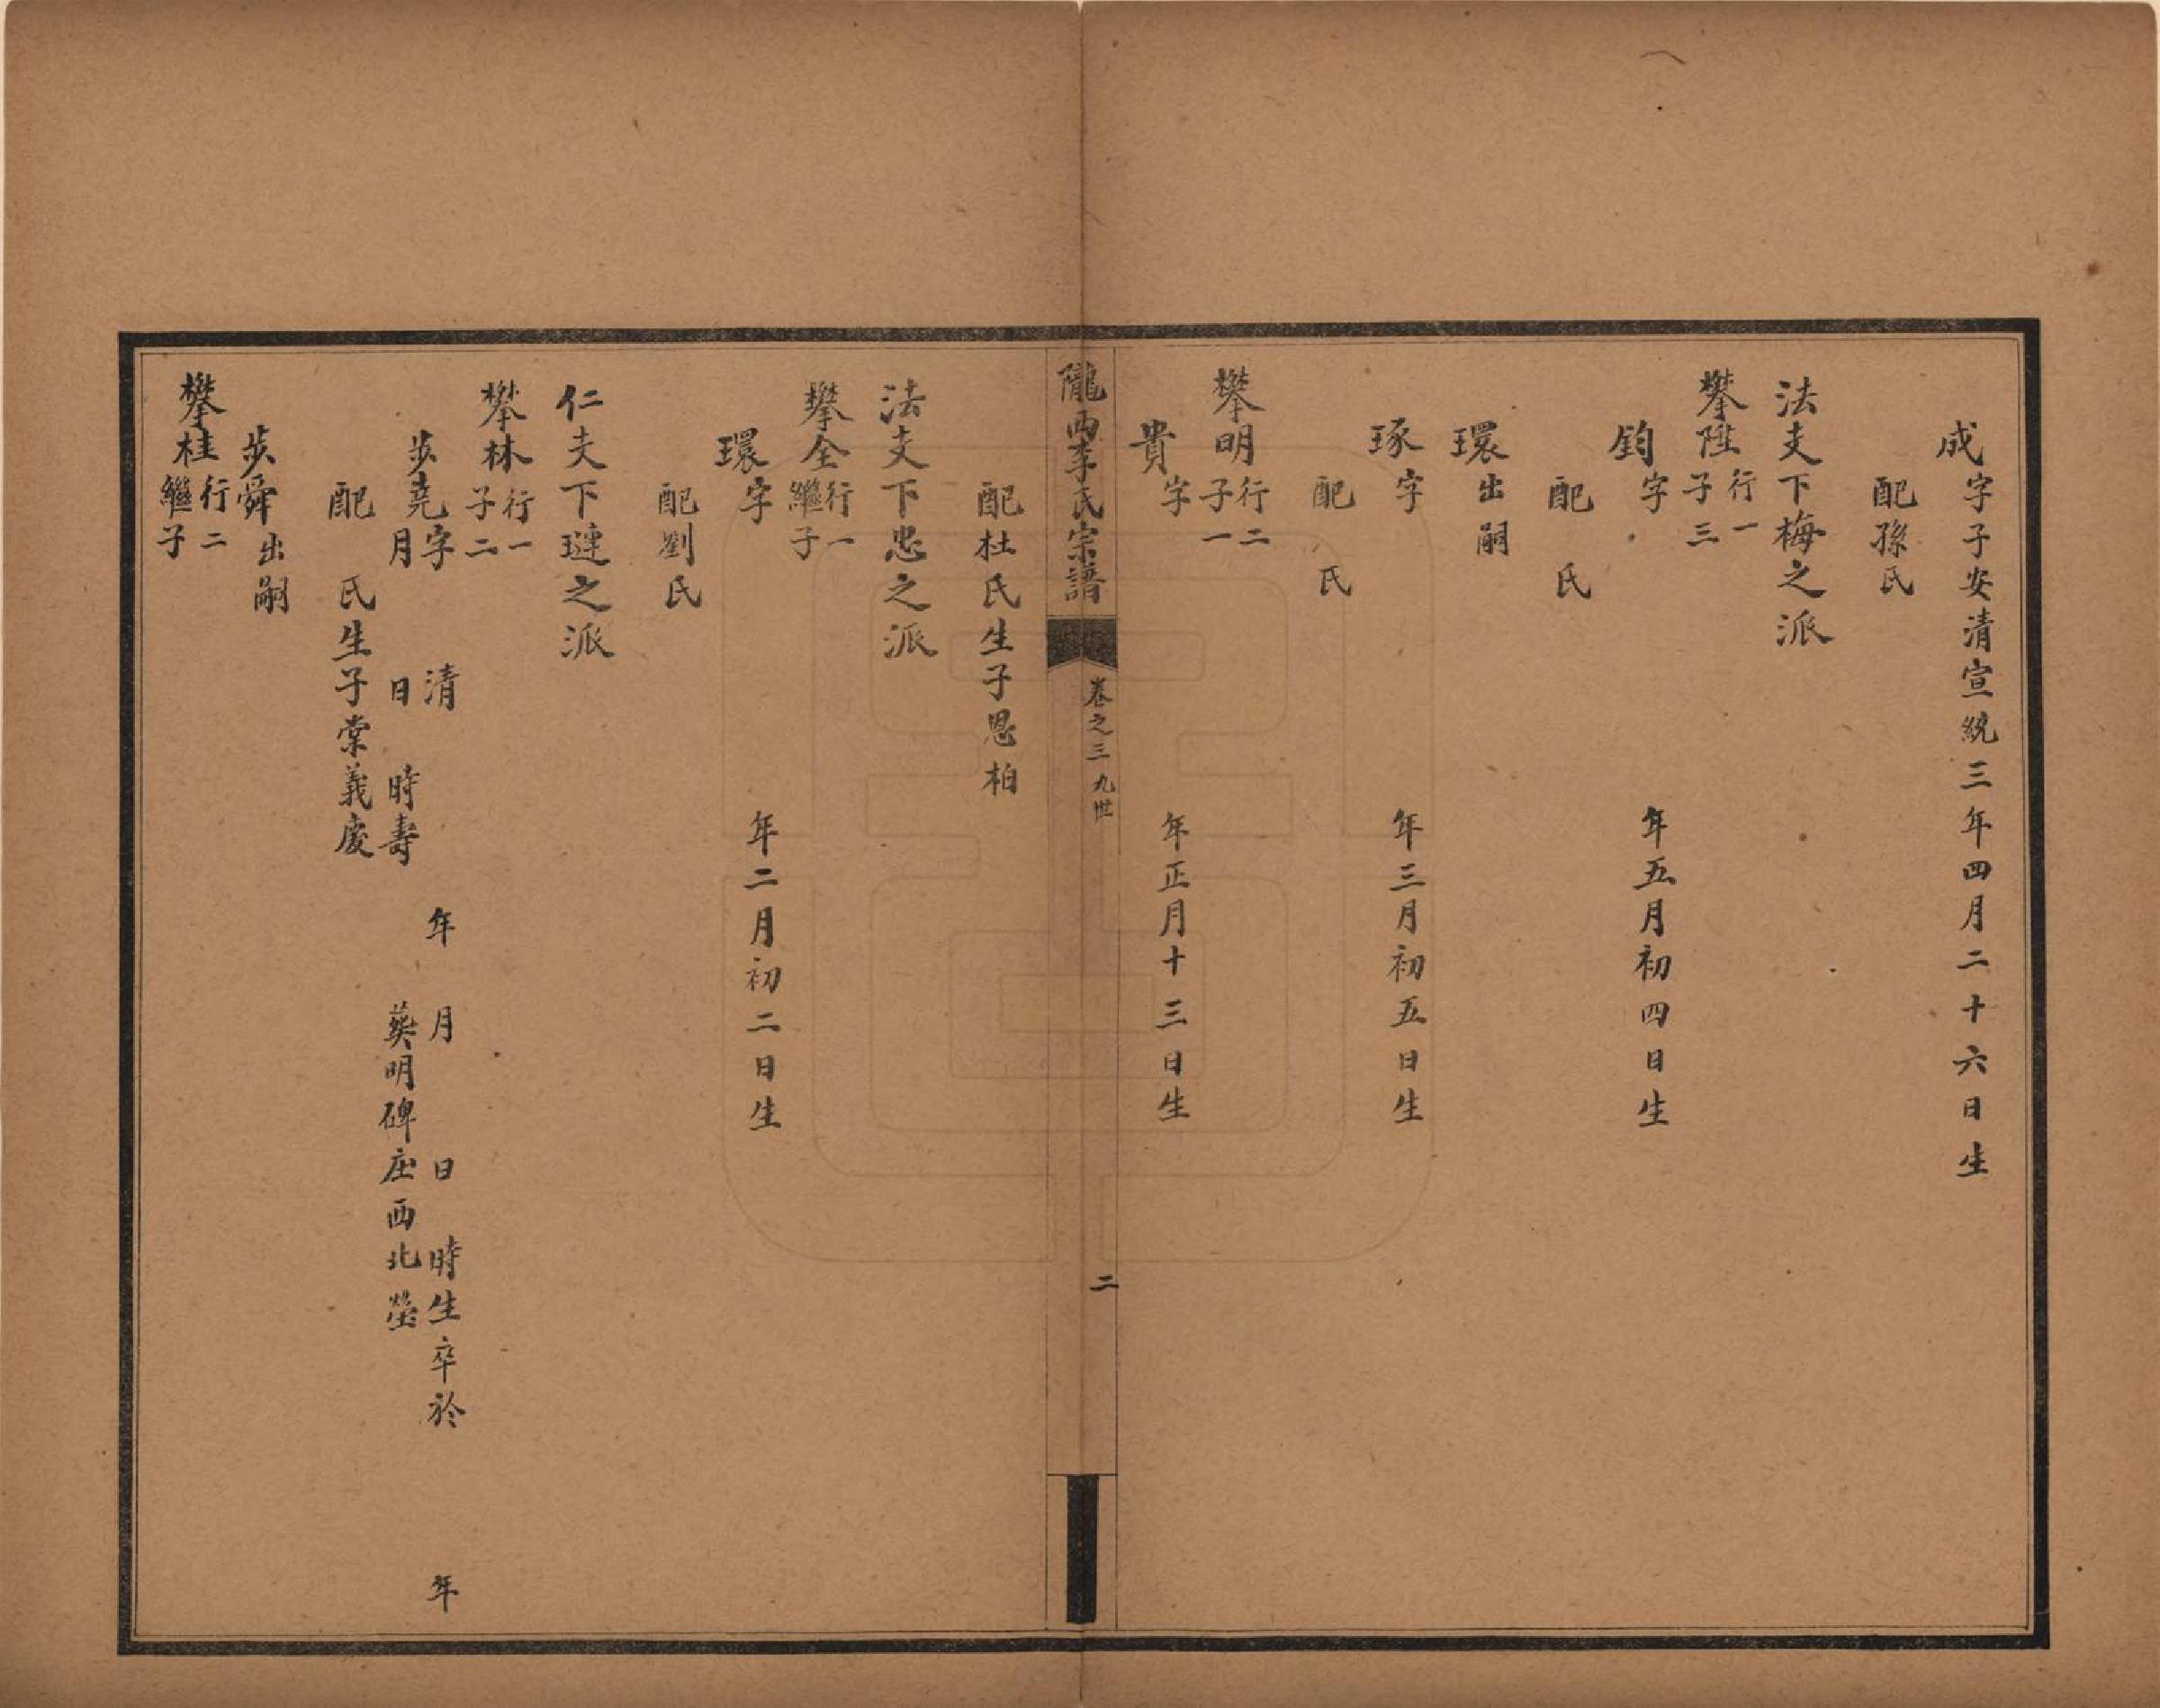 成字子安清宣統三年四月二十六日生
配孫氏
法支下梅之派
攀陞行一子三
鈞字　年五月初四日生
配　氏
環出嗣
琢字　年三月初五日生
配　氏
攀明行二子一
貴字　年正月十三日生
隴西李氏宗譜　卷之三　九世　二
配杜氏生子恩柏
法支下忠之派
攀全行一繼子
環字　年二月初二日生
配劉氏
仁支下璉之派
攀林行一子二
步堯字　清　年　月　日　時生卒於　年
月　日　時壽　葬明碑庄西北塋
配　氏生子棠義慶
步舜出嗣
攀桂行二繼子